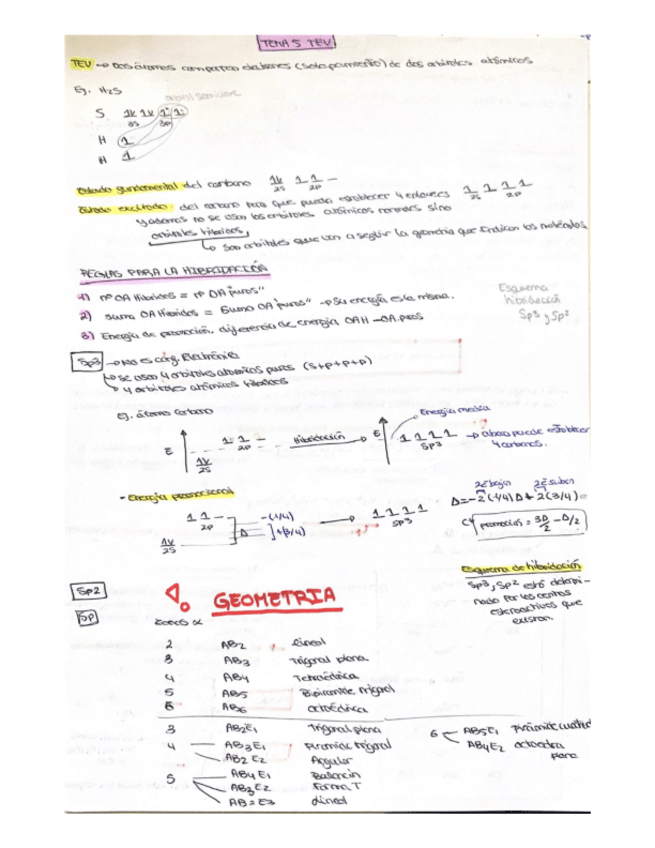 TEMA 5 TEV
TEV → Dos átomos comparten electrones (solapamiento) de dos orbitales atómicos
Eg. H2S
S 1v 1v 1 1
3s 3p
H 1
H 1
Estado fundamental del carbono 1v 1 1 –
2s 2p
Estado excitado: del carbono para que pueda establecer 4 enlaces 1 1 1 1
2s 2p
y además no se usan los orbitales atómicos normales sino
orbitales híbridos,
↳ son orbitales que van a seguir la geometría que indican las moléculas
REGLAS PARA LA HIBRIDACIÓN
1) nº OA Híbridos = nº OA "puros"
2) suma OA Híbridos = Suma OA "puros" → su energía es la misma.
3) Energía de promoción, diferencia de energía OAH – OA puros
Esquema
hibridación
Sp3 y Sp2
Sp3 → No es cfg. Electrónica
↳ se usan 4 orbitales atómicos puros (s+p+p+p)
↳ 4 orbitales atómicos híbridos
Eg. átomo carbono
Energía media
E 1 1 –
2p
1v
2s
Hibridación
E 1 1 1 1
Sp3
→ Ahora puede establecer
4 carbonos.
- Energía promocional
1 1 –
2p
-(1/4)
Δ
+(3/4)
1v
2s
1 1 1 1
sp3
2e bajan 2e suben
Δ=-2(1/4)Δ+2(3/4)=
promoción = 3Δ/2 - Δ/2
Esquema de hibridación
Sp3, Sp2 está determi-
nado por los centros
estereoactivos que
existan.
Sp2
Sp
GEOMETRIA
2 AB2 Lineal
3 AB3 Trigonal plana
4 AB4 Tetraédrica
5 AB5 Bipirámide trigonal
6 AB6 octoédrica
3 AB2E1 Trigonal plana
4 AB3E1 Piramide trigonal
AB2E2 Angular
5 AB4E1 Balancín
AB3E2 Forma T
AB2E3 Lineal
6 AB5E1 Pirámide cuadrad
AB4E2 octoedra
plana